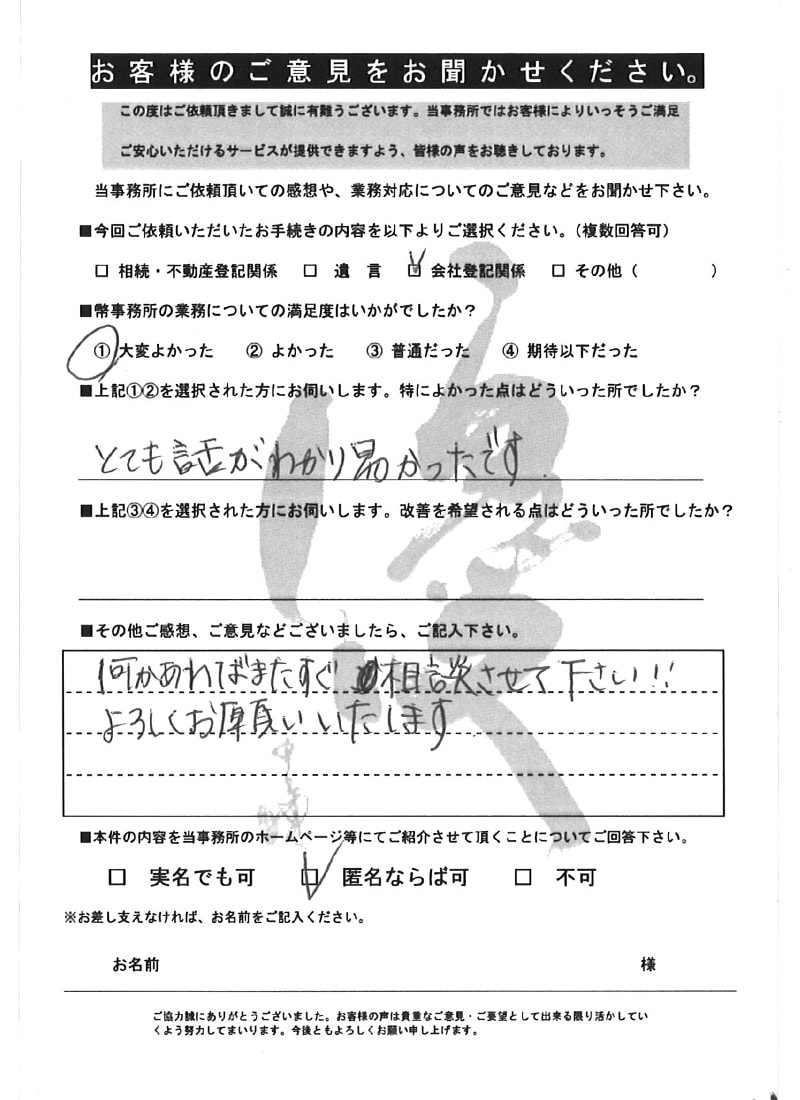 お客様のご意見をお聞かせください。
この度はご依頼頂きまして誠に有難うございます。当事務所ではお客様によりいっそうご満足
ご安心いただけるサービスが提供できますよう、皆様の声をお聴きしております。
当事務所にご依頼頂いての感想や、業務対応についてのご意見などをお聞かせ下さい。
■今回ご依頼いただいたお手続きの内容を以下よりご選択ください。(複数回答可)
□ 相続・不動産登記関係 □ 遺 言 ☑ 会社登記関係 □ その他 ( )
■幣事務所の業務についての満足度はいかがでしたか?
① 大変よかった ② よかった ③ 普通だった ④ 期待以下だった
■上記①②を選択された方にお伺いします。特によかった点はどういった所でしたか?
とても話がわかり易かったです.
■上記③④を選択された方にお伺いします。改善を希望される点はどういった所でしたか?
■その他ご感想、ご意見などございましたら、ご記入下さい。
何かあればまたすぐ相談させて下さい!!
よろしくお願いいたします
■本件の内容を当事務所のホームページ等にてご紹介させて頂くことについてご回答下さい。
□ 実名でも可 ☑ 匿名ならば可 □ 不可
※お差し支えなければ、お名前をご記入ください。
お名前 様
ご協力誠にありがとうございました。お客様の声は貴重なご意見・ご要望として出来る限り活かしてい
くよう努力してまいります。今後ともよろしくお願い申し上げます。